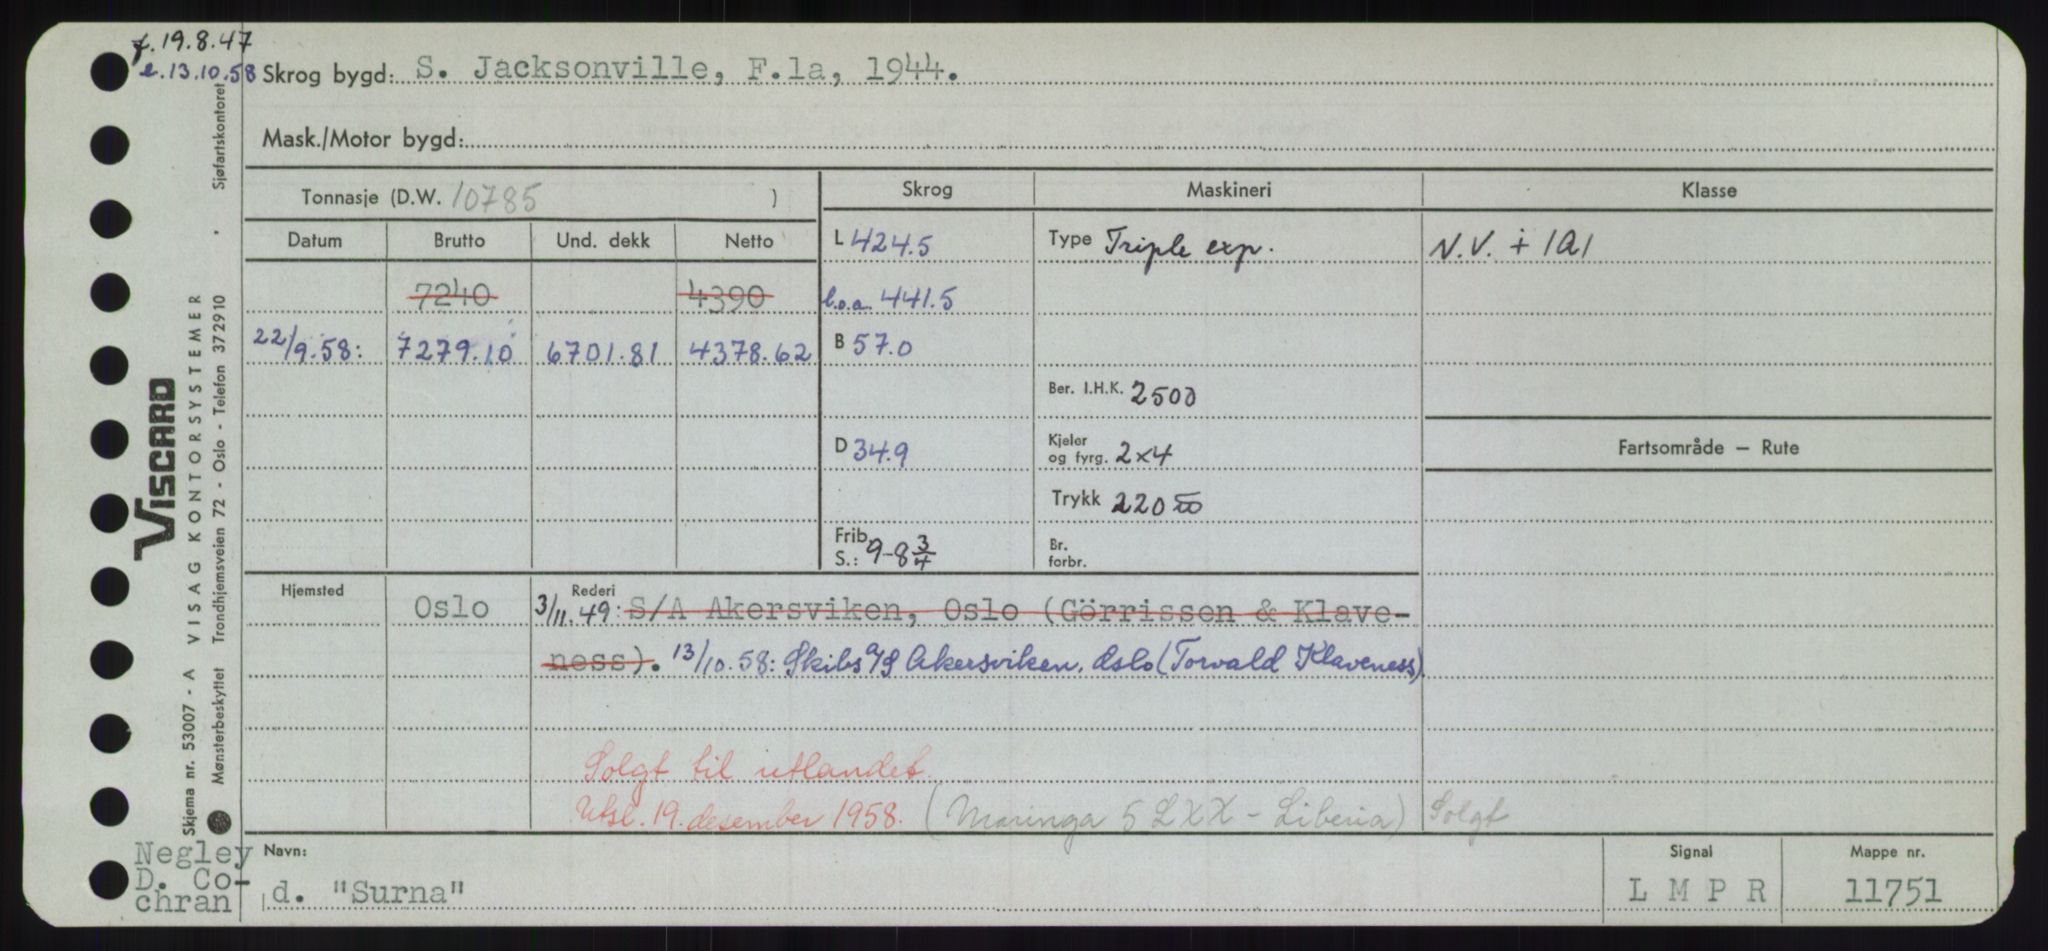 f. 19.8.47
e. 13.10.58 Skrog bygd: S. Jacksonville, F.la, 1944.
Mask./Motor bygd:
Tonnasje (D.W. 10785 )
Skrog Maskineri Klasse
Datum Brutto Und. dekk Netto
L 424.5 Type Triple exp. N.V. + 1A1
7240 4390 l.o.a. 441.5
22/9.58: 7279.10 6701.81 4378.62 B 57.0
Ber. I.H.K. 2500
D 34.9 Kjeler
og fyrg. 2x4 Fartsområde – Rute
Trykk 220
Frib.
S.: 9-8 3/4 Br.
forbr.
Hjemsted Oslo Rederi
3/11.49: S/A Akersviken, Oslo (Görrissen & Klave-
ness). 13/10.58: Skibs A/S Akersviken, Oslo (Torvald Klaveness)
Solgt til utlandet.
Utsl. 19. desember 1958. (Maringa 5LXX - Liberia) Solgt
Negley
D. Co-
chran
Navn:
d. "Surna"
Signal
L M P R
Mappe nr.
11751
VISCARD
VISAG KONTORSYSTEMER
Skjema nr. 53007 - A
Mønsterbeskyttet Trondhjemsveien 72 - Oslo - Telefon 37 29 10 . Sjøfartskontoret